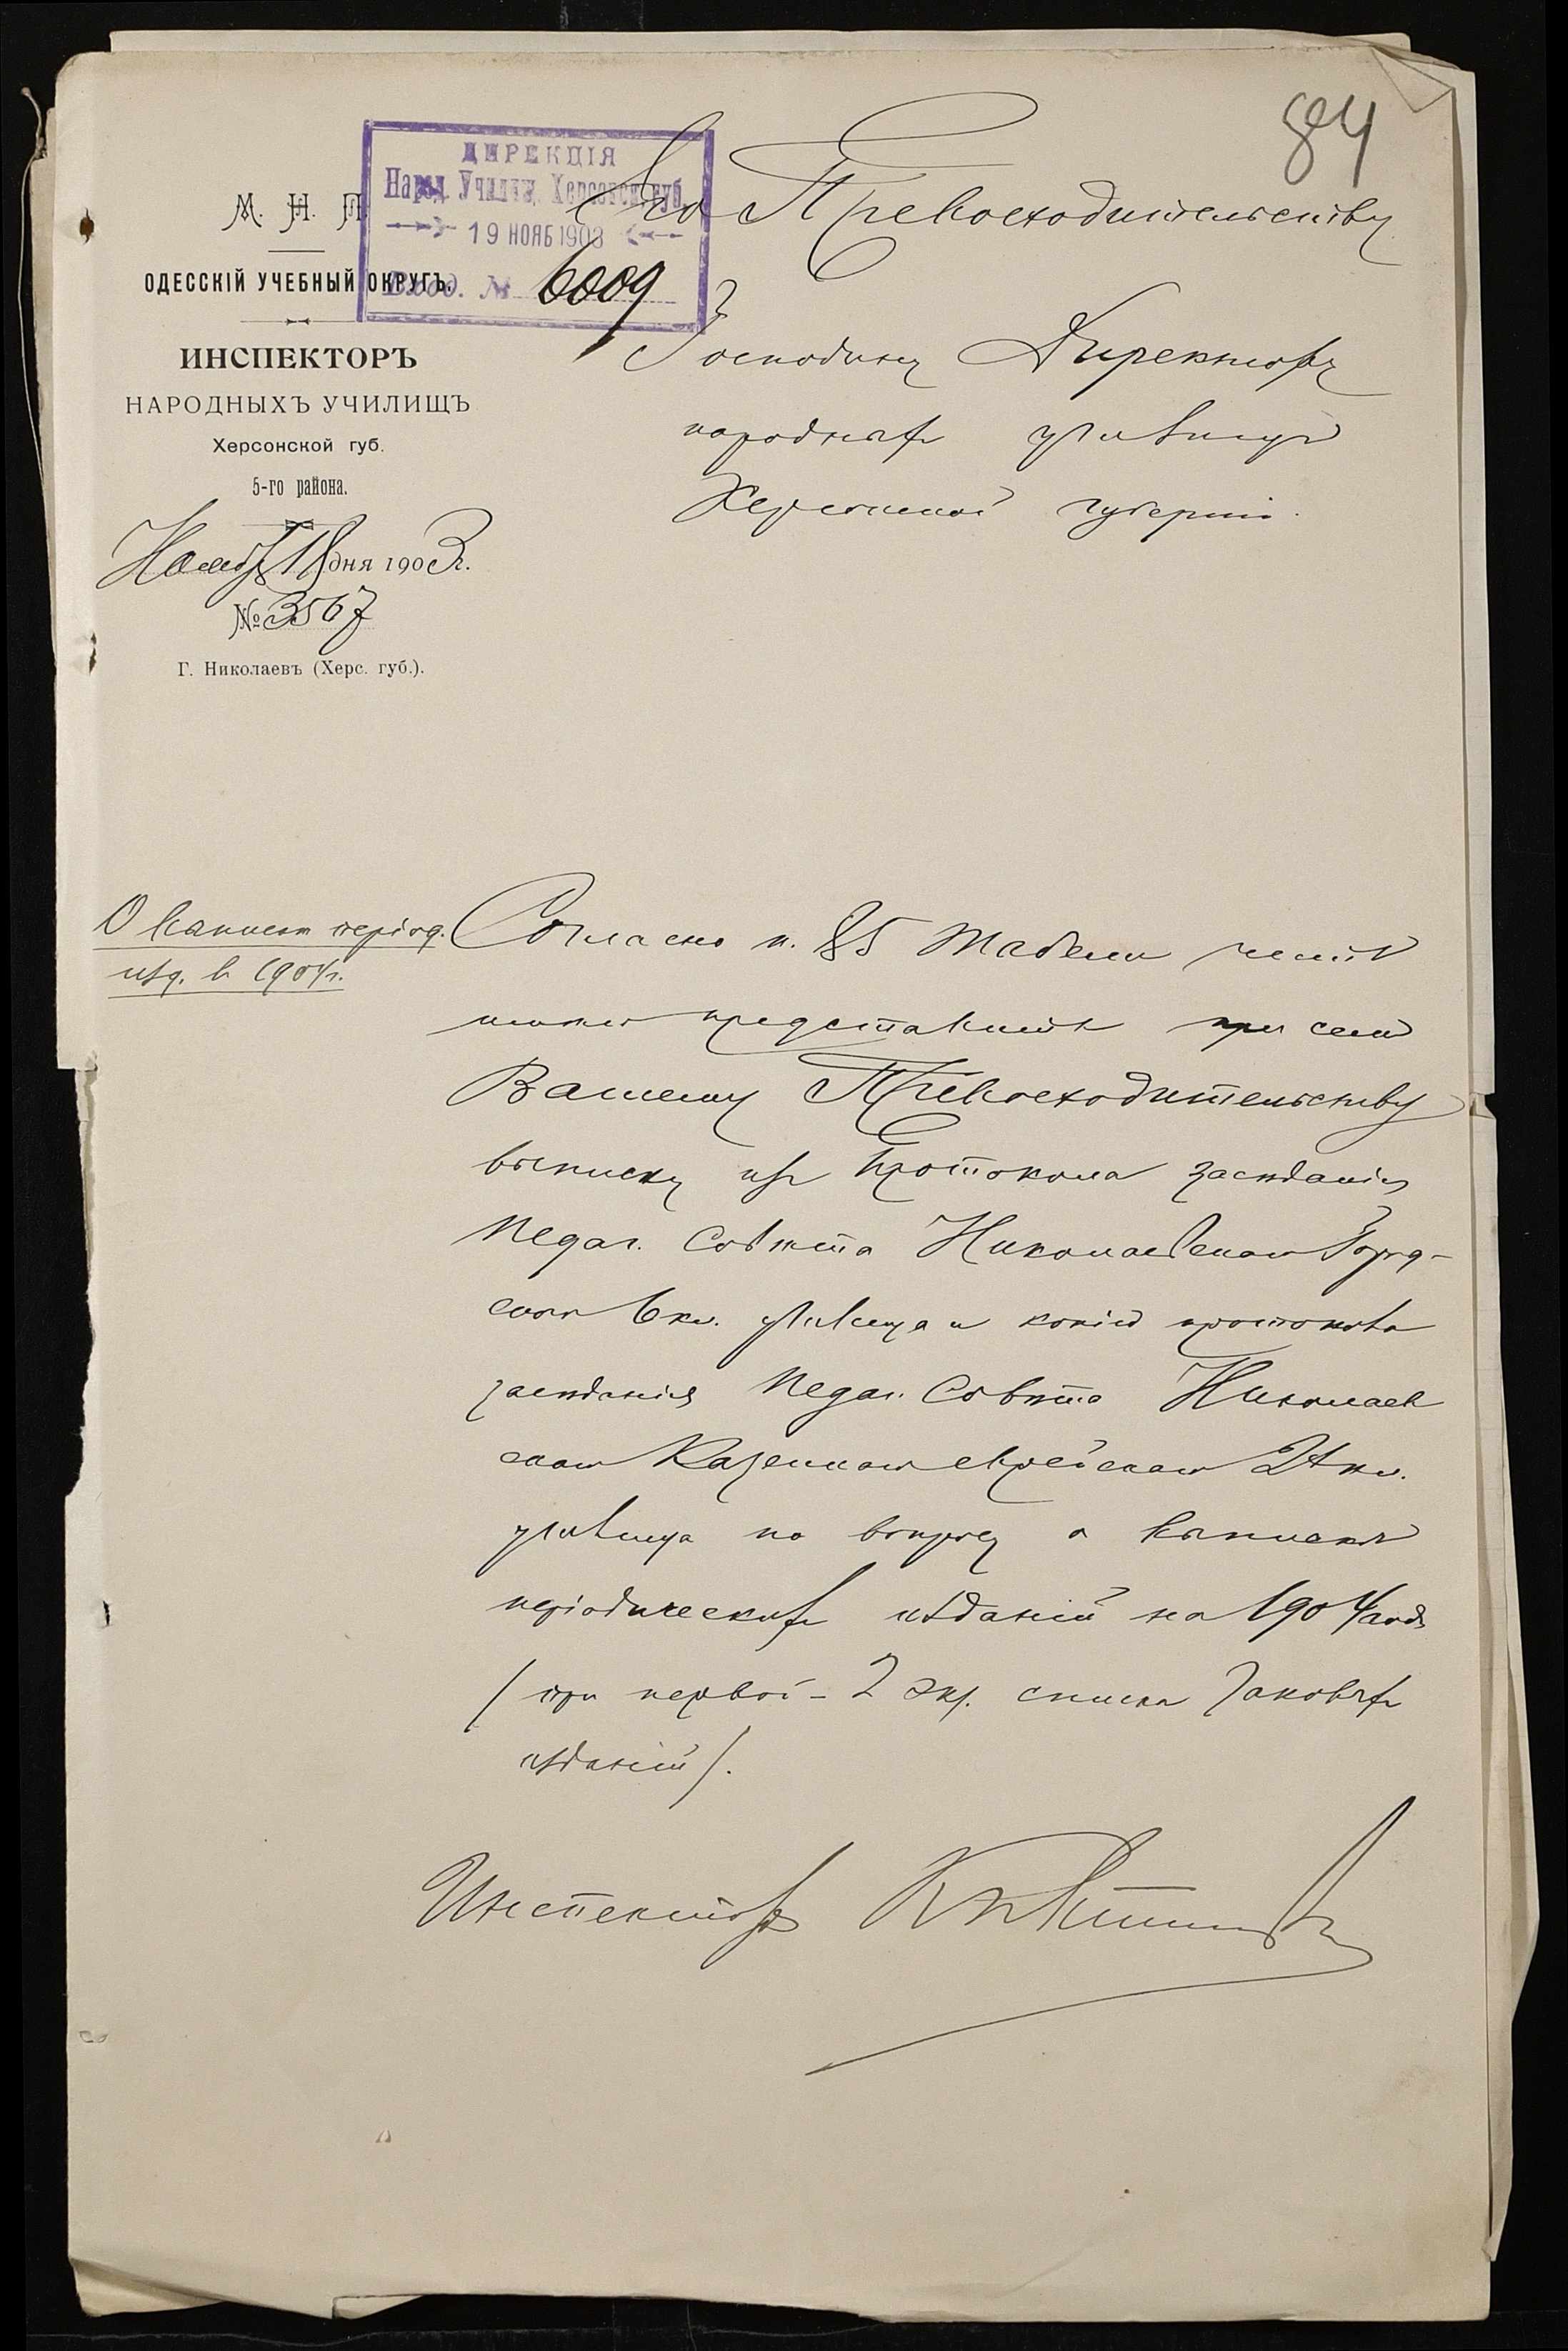 84
ДИРЕКЦІЯ
Народ. Училищ. Херсонск. губ.
19 НОЯБ 1903
Вход. № 6009
М. Н. П.
ОДЕССКІЙ УЧЕБНЫЙ ОКРУГЪ.
ИНСПЕКТОРЪ
НАРОДНЫХЪ УЧИЛИЩЪ
Херсонской губ.
5-го района.
Ноября 18 дня 1903 г.
№ 3567
Г. Николаевъ (Херс. губ.).
Его Превосходительству
Господину Директору
народныхъ училищъ
Херсонской губерніи.
О выпискѣ період.
изд. въ 1904 г.
Согласно п. 85 Табели честь
имѣю представить при семъ
Вашему Превосходительству
выписку изъ протокола засѣданія
Педаг. Совѣта Николаевскаго Город-
ского 6 кл. училища и копію протокола
засѣданія Педаг. Совѣта Николаев
скаго Казеннаго еврейскаго 2 кл.
училища по вопросу о выпискѣ
періодическихъ изданій на 1904 годъ
(при первой - 2 экз. списка таковыхъ
изданій).
Инспекторъ